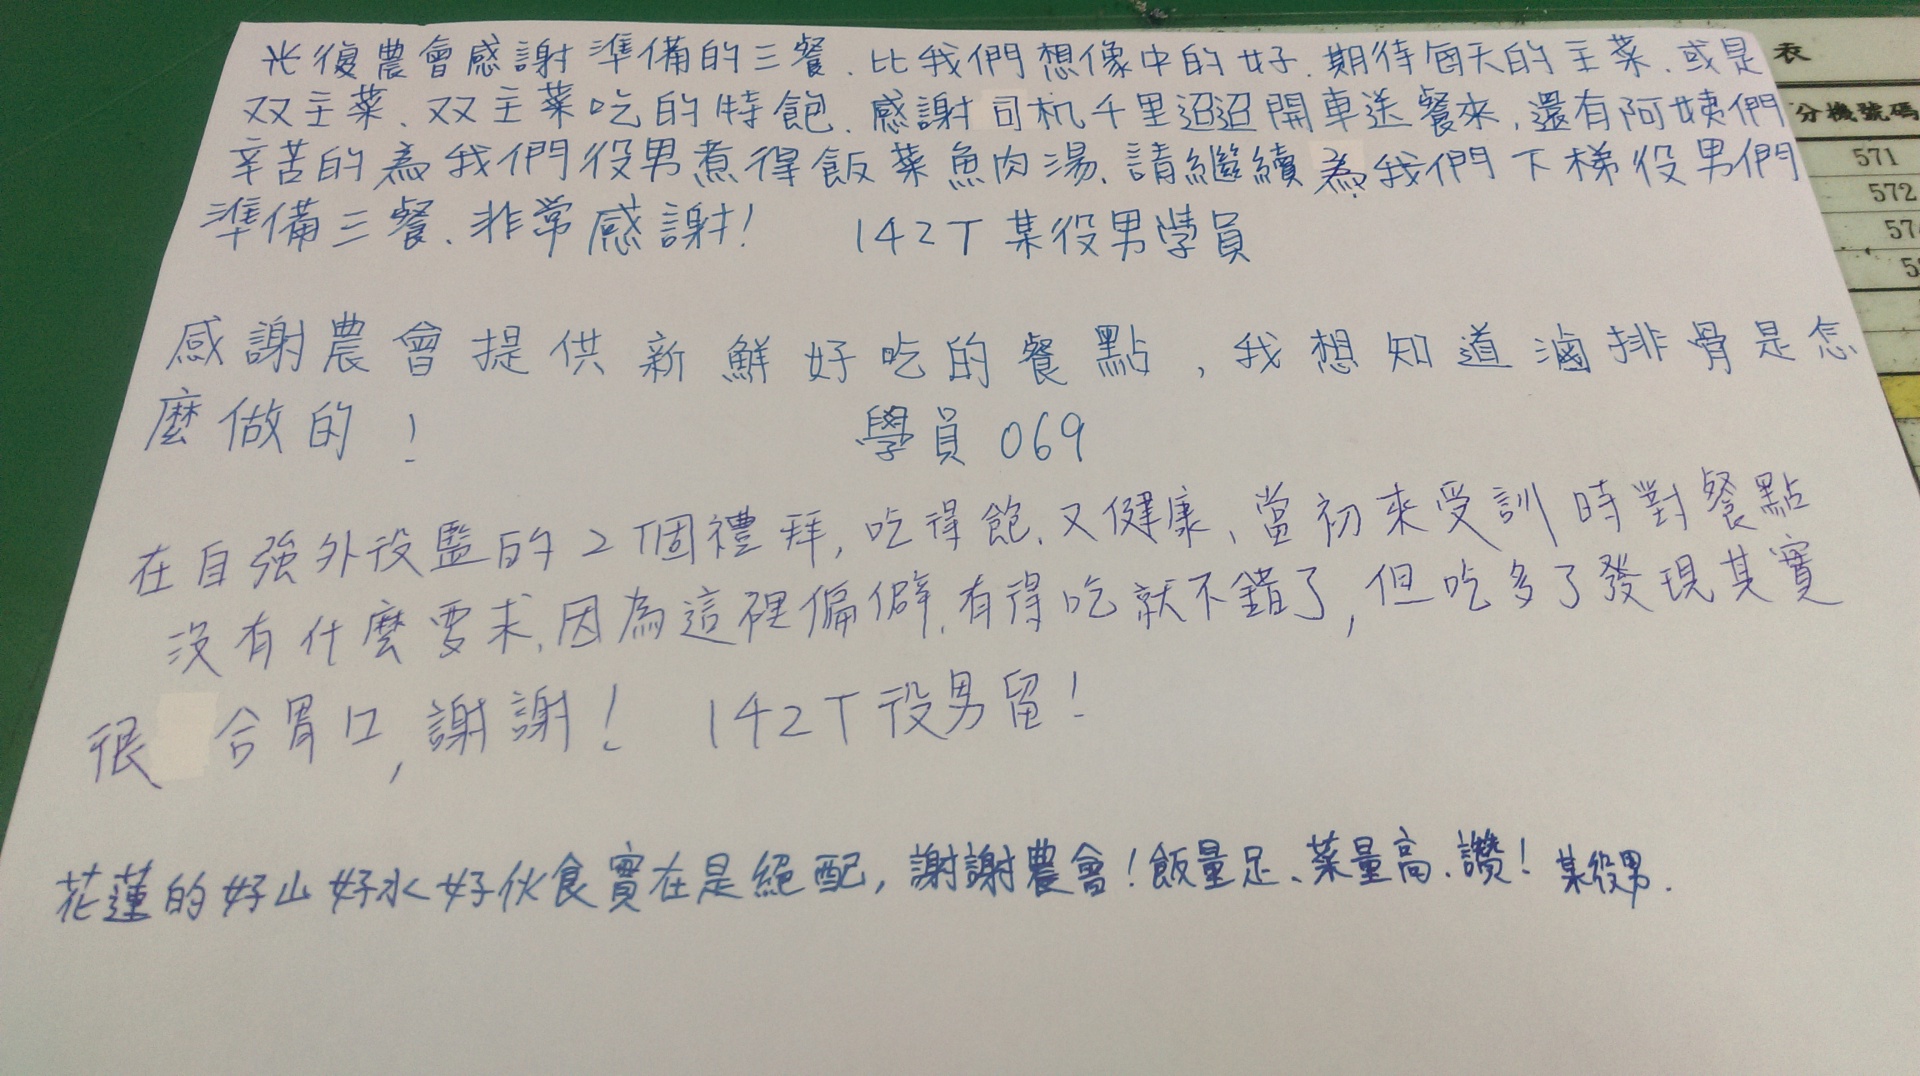 光復農會感謝準備的三餐、比我們想像中的好、期待每天的主菜、或是
双主菜、双主菜吃的特飽、感謝司机千里迢迢開車送餐來,還有阿姨們
辛苦的為我們役男煮得飯菜魚肉湯、請繼續為我們下梯役男們
準備三餐、非常感謝! 142T 某役男學員
感謝農會提供新鮮好吃的餐點,我想知道滷排骨是怎
麼做的! 學員 069
在自強外役監的2個禮拜,吃得飽、又健康、當初來受訓時對餐點
沒有什麼要求、因為這裡偏僻、有得吃就不錯了,但吃多了發現其實
很合胃口,謝謝! 142T役男留!
花蓮的好山好水好伙食實在是絕配,謝謝農會!飯量足、菜量高、讚! 某役男.
表
分機號碼
571
572